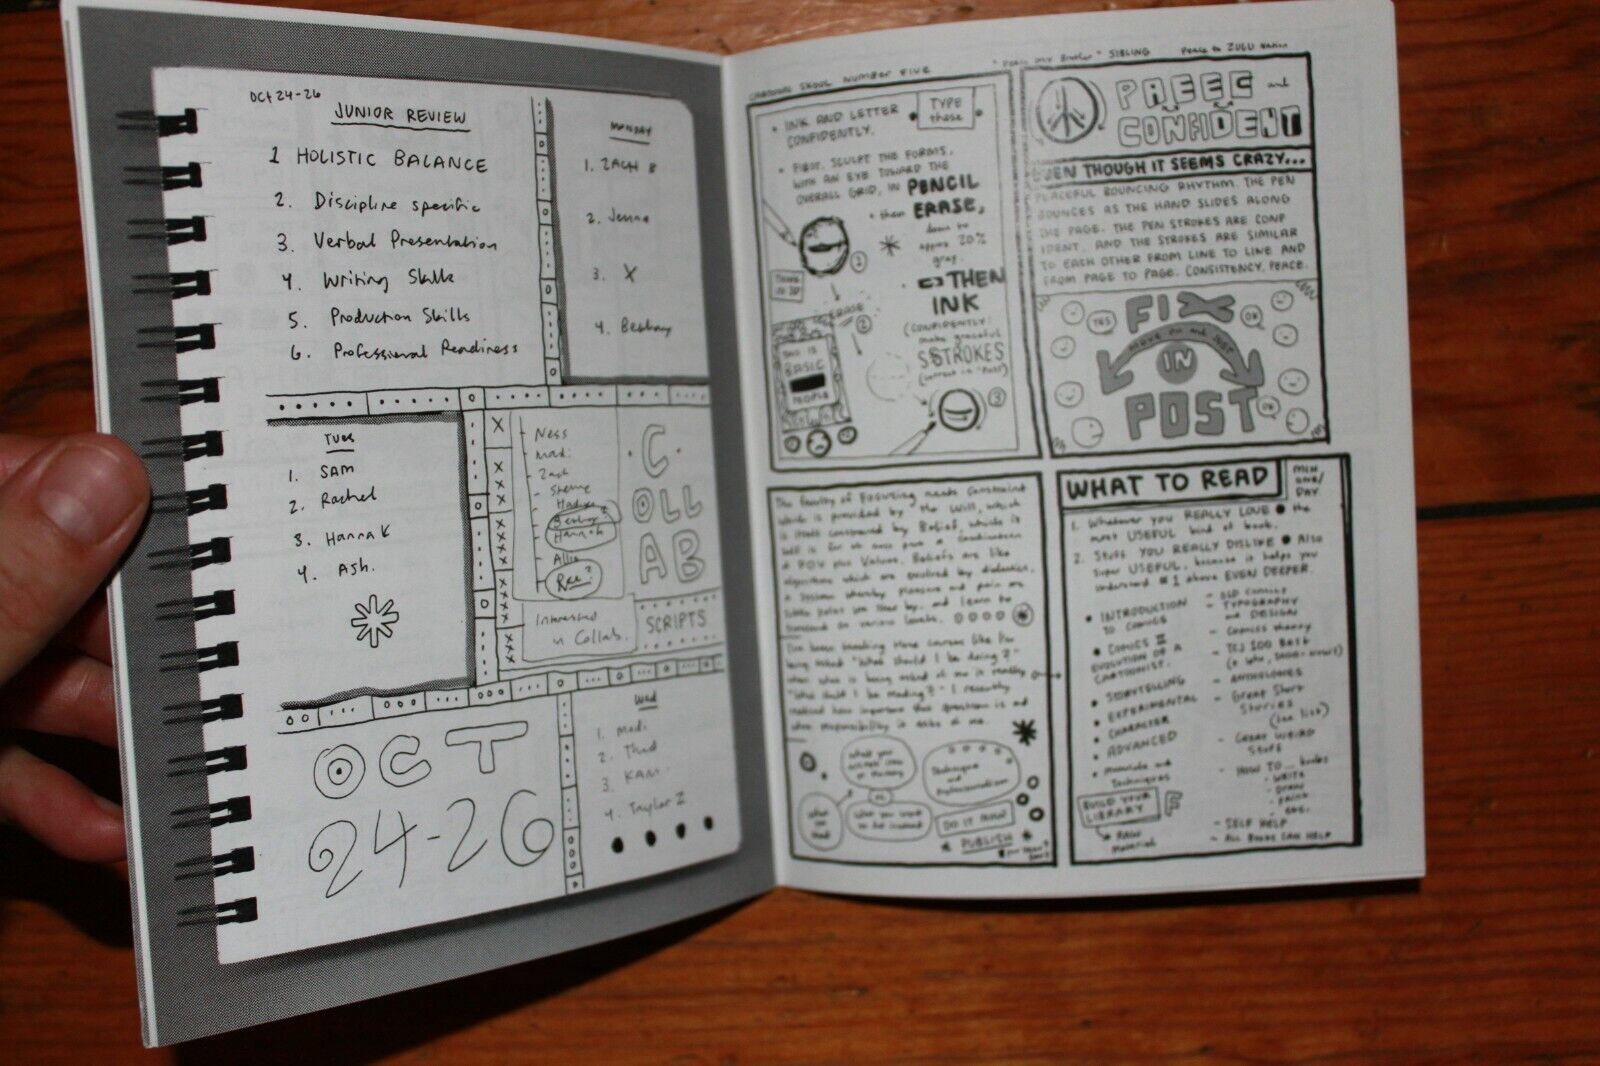 OCT 24-26
JUNIOR REVIEW
1 HOLISTIC BALANCE
2. Discipline specific
3. Verbal Presentation
4. Writing Skills
5. Production Skills
6. Professional Readiness
MONDAY
1. ZACH B
2. Jenna
3. X
4. Bethany
Tues
1. SAM
2. Rachel
3. Hanna K
4. Ash.
Ness
Madi
Zach
Hannah
Allie
Rae?
Interested
in Collab.
C.
OLL
AB
SCRIPTS
OCT
24-26
Wed
1. Madi
2. Thad
3. KAM
4. Taylor Z
CARTOON SKOOL NUMBER FIVE
SIBLING
Peace to ZULU Nation
INK AND LETTER
CONFIDENTLY.
TYPE
these
FIRST, SCULPT THE FORMS,
WITH AN EYE TOWARD THE
OVERALL GRID, IN PENCIL
then ERASE,
down to
approx 20%
gray.
THEN
INK
(CONFIDENTLY:
make graceful
STROKES
(correct in "Post")
1
ERASE
2
THIS IS
BASIC
PEOPLE
3
PEEEC and
CONFIDENT
EVEN THOUGH IT SEEMS CRAZY...
PEACEFUL BOUNCING RHYTHM. THE PEN
BOUNCES AS THE HAND SLIDES ALONG
THE PAGE. THE PEN STROKES ARE CONF
IDENT, AND THE STROKES ARE SIMILAR
TO EACH OTHER FROM LINE TO LINE AND
FROM PAGE TO PAGE. CONSISTENCY, PEACE.
YES
FIX
OK
IN
POST
The faculty of Focusing needs Constraint
which is provided by the Will, which
is itself constrained by Belief, which is
a POV plus Values. Beliefs are like
algorithms which are evolved by dialectics,
a session whereby pleasure and pain are
transcend on various levels.
I've been teaching these courses like I'm
being asked "What should I be doing?"
when what is being asked of me is really
"What should I be reading?" I recently
realized how important this question is and
what responsibility it asks of me.
Technique
and
Professionalism
What you want
to be
DO IT NOW
PUBLISH
WHAT TO READ
MIN.
one/
DAY
1. Whatever YOU REALLY LOVE the
most USEFUL kind of book.
2. Stuff YOU REALLY DISLIKE Also
Super USEFUL, because it helps you
understand #1 above EVEN DEEPER.
INTRODUCTION
TO COMICS
COMICS II
EVOLUTION OF A
CARTOONIST.
STORYTELLING
EXPERIMENTAL
CHARACTER
ADVANCED
Materials and
Techniques
BUILD YOUR
LIBRARY
RAW
Material
- OLD COMICS
- TYPOGRAPHY
and DESIGN
- Comics theory
- TCJ 100 Best
- ANTHOLOGIES
- Great Short
Stories
(see list)
- Great Weird
Stuff
- HOW TO... books
- WRITE
- DRAW
- PAINT
- etc.
- SELF HELP
- ALL BOOKS CAN HELP